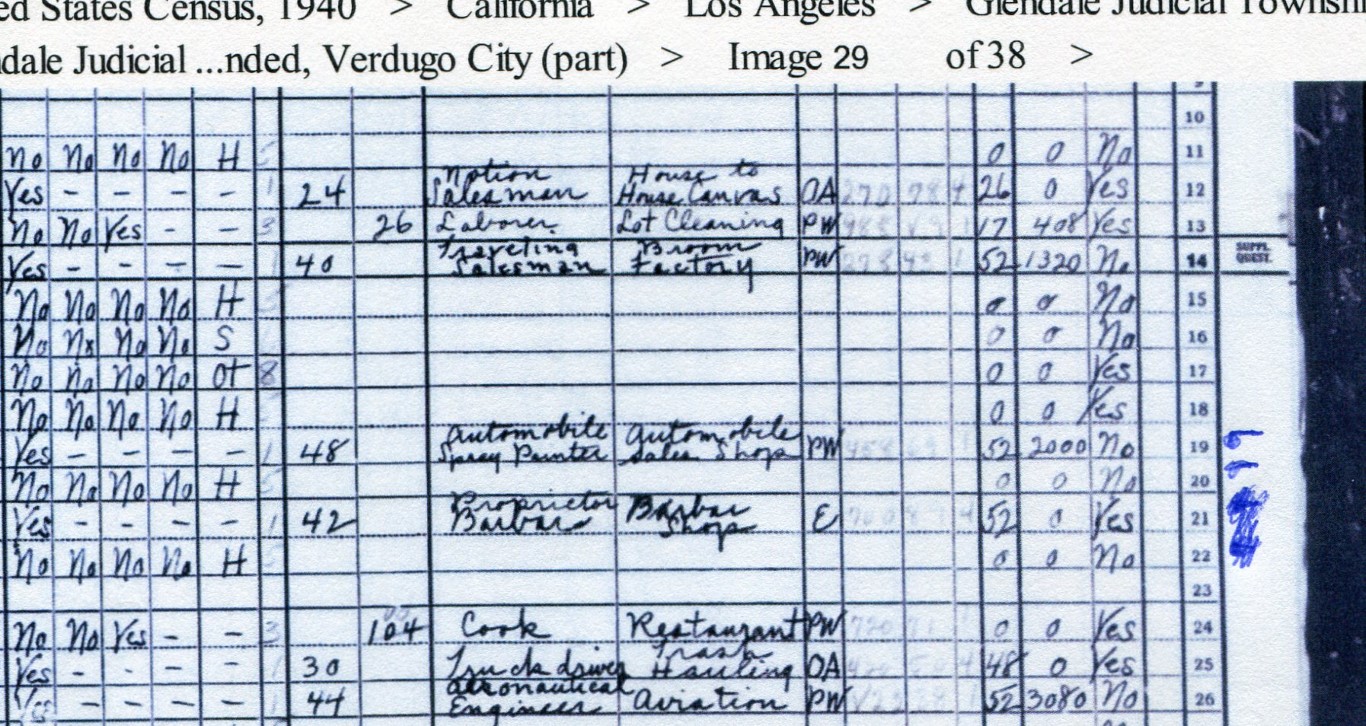 ed States Census, 1940 > California > Los Angeles > Glendale Judicial Townshi
dale Judicial ...nded, Verdugo City (part) > Image 29 of 38 >
10
No No No No H 5 0 0 No 11
Yes - - - - 1 24 Notion Salesman House to House Canvas OA 26 0 Yes 12
No No Yes - - 3 26 Laborer Lot Cleaning PW 17 408 Yes 13
Yes - - - - 1 40 Traveling Salesman Broom Factory PW 52 1320 No 14 SUPPL. QUEST.
No No No No H 5 0 0 No 15
No No No No S 0 0 No 16
No No No No Ot 8 0 0 Yes 17
No No No No H 0 0 Yes 18
Yes - - - - 1 48 Automobile Spray Painter Automobile Sales Shop PW 52 2000 No 19
No No No No H 5 0 0 No 20
Yes - - - - 1 42 Proprietor Barbar Barbar Shop E 52 0 Yes 21
No No No No H 5 0 0 No 22
23
No No Yes - - 3 104 Cook Restaurant PW 0 0 Yes 24
Yes - - - - 1 30 Truck driver Trash Hauling OA 48 0 Yes 25
Yes - - - - 1 44 Aeronautical Engineer Aviation PW 52 3080 No 26